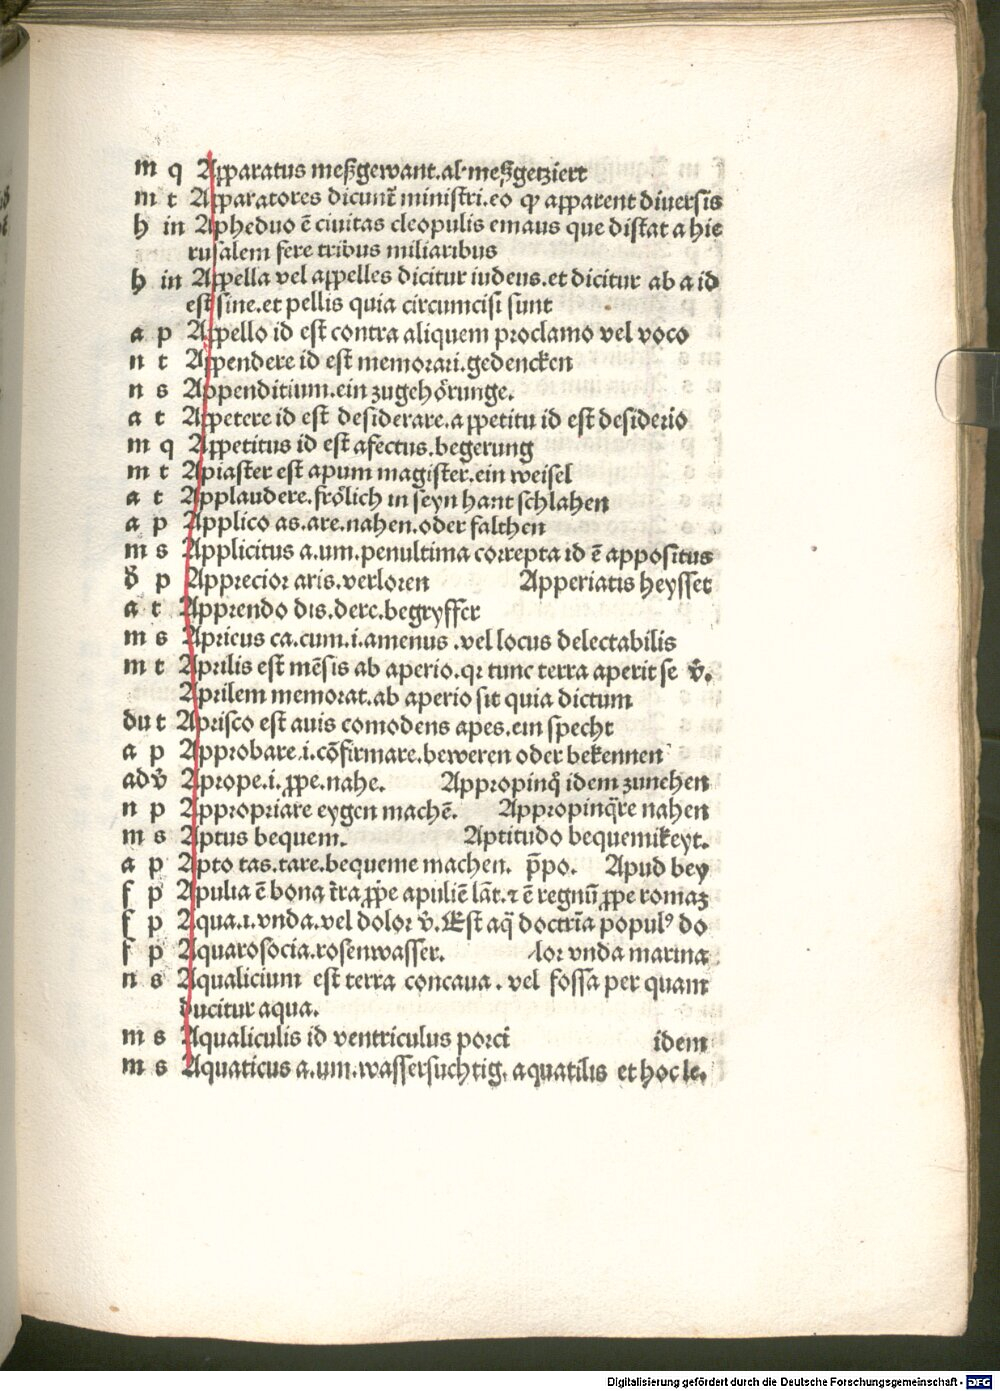 m q Apparatus meßgewant.al meßgetziert
m t Apparatores dicunt̄ ministri.eo ꝙ apparent diuersis
h in Apheduo ē ciuitas cleopulis emaus que distat a hie
rusalem fere tribus miliaribus
h in Appella vel appelles dicitur iudeus.et dicitur ab a id
est sine.et pellis quia circumcisi sunt
a p Appello id est contra aliquem proclamo vel voco
n t Appendere id est memorari.gedencken
n s Appenditium.ein zugehörunge.
a t Appetere id est desiderare.appetitu id est desiderio
m q Appetitus id est afectus.begerung
m t Apiaster est apum magister.ein weisel
a t Applaudere.frölich in seyn hant schlahen
a p Applico as.are.nahen.oder falthen
m s Applicitus a.um.penultima correpta id ē appositus
p Apprecior aris.verloren Apperiatis heysset
a t Apprendo dis.dere.begryffer
m s Apricus ca.cum.i.amenus .vel locus delectabilis
m t Aprilis est mēsis ab aperio.qr tunc terra aperit se v̄.
Aprilem memorat.ab aperio sit quia dictum
du t Aprisco est auis comodens apes.ein specht
a p Approbare.i.cōfirmare.beweren oder bekennen
adv̄ Aprope.i.ꝓpe.nahe. Appropinq̄ idem zunehen
n p Appropriare eygen machē. Appropinq̄re nahen
m s Aptus bequem. Aptitudo bequemikeyt.
a p Apto tas.tare.bequeme machen. p̄po. Apud bey
f p Apulia ē bona t̄ra ꝓpe apuliē lāt.⁊ ē regnū ꝓpe romaꝫ
f p Aqua.i.vnda.vel dolor v̄.Est aq̄ doctrīa populꝰ do
f p Aquarosocia.rosenwasser. lor vnda marina
n s Aqualicium est terra concaua. vel fossa per quam
ducitur aqua.
m s Aqualiculis id ventriculus porci idem
m s Aquaticus a.um.wassersuchtig. aquatilis et hoc le.
Digitalisierung gefördert durch die Deutsche Forschungsgemeinschaft - DFG